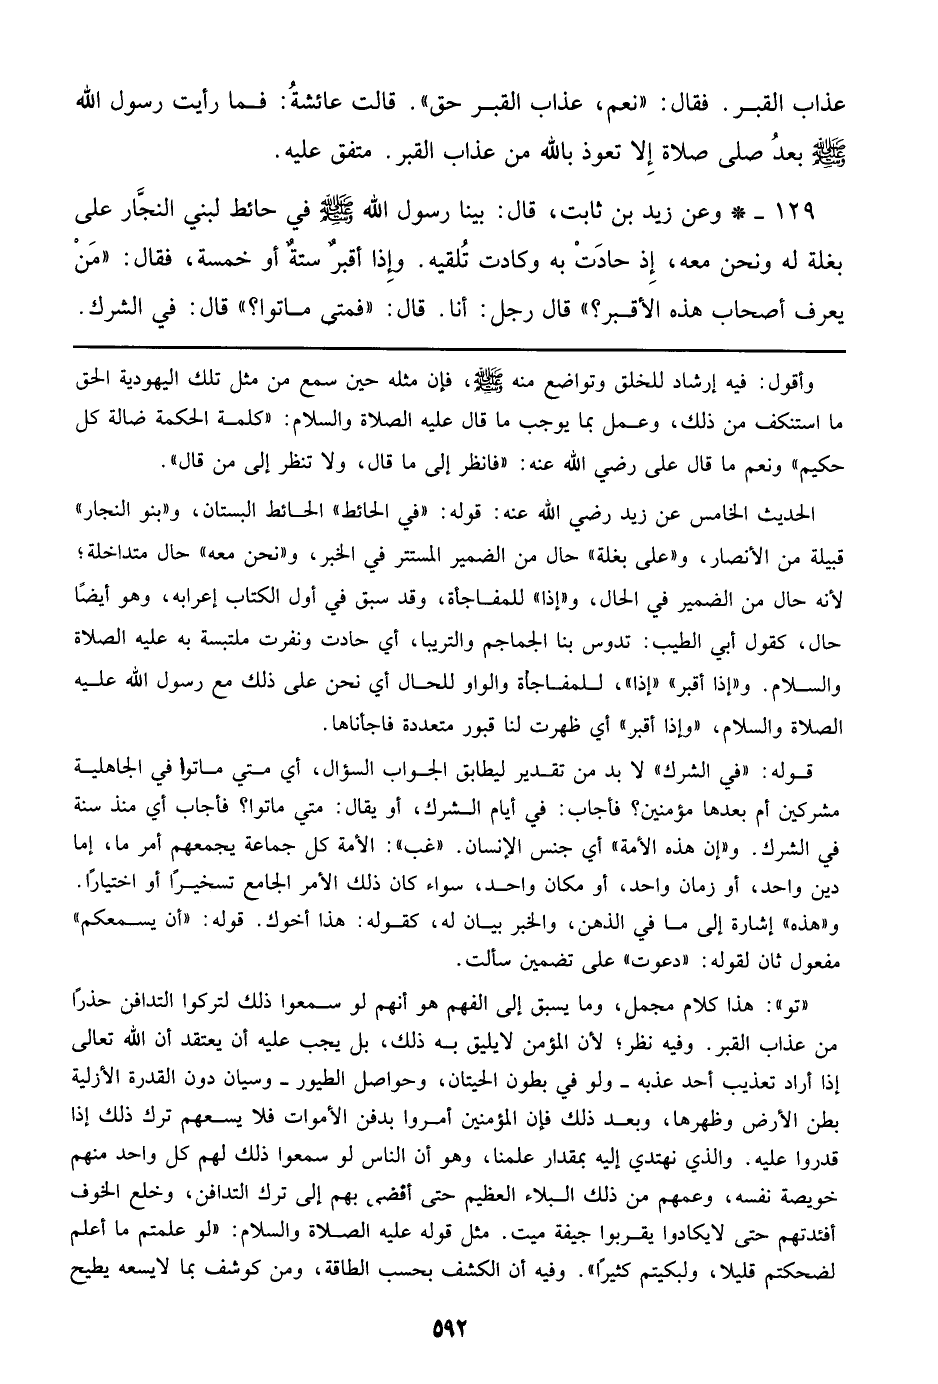 عذاب القبـر. فقال: «نعم، عذاب القبـر حق». قالت عائشةُ: فـما رأيت رسول الله
ﷺ بعدُ صلى صلاة إِلا تعوذ بالله من عذاب القبر. متفق عليه.
١٢٩ ـ * وعن زيد بن ثابت، قال: بينا رسول الله ﷺ في حائط لبني النجَّار على
بغلة له ونحن معه، إِذ حادَتْ به وكادت تُلقيه. وإِذا أقبرٌ ستةٌ أو خمسة، فقال: «مَنْ
يعرف أصحاب هذه الأقـبر؟» قال رجل: أنا. قال: «فمتى مـاتوا؟» قال: في الشرك.
وأقول: فيه إرشاد للخلق وتواضع منه ﷺ، فإن مثله حين سمع من مثل تلك اليهودية الحق
ما استنكف من ذلك، وعـمل بما يوجب ما قال عليه الصلاة والسلام: «كلمـة الحكمة ضالة كل
حكيم» ونعم ما قال على رضي الله عنه: «فانظر إلى ما قال، ولا تنظر إلى من قال».
الحديث الخامس عن زيد رضي الله عنه: قوله: «في الحائط» الحـائط البستان، و«بنو النجار»
قبيلة من الأنصار، و«على بغلة» حال من الضمير المستتر في الخبر، و«نحن معه» حال متداخلة؛
لأنه حال من الضمير في الحال، و«إذا» للمفـاجأة، وقد سبق في أول الكتاب إعرابه، وهو أيضًا
حال، كقول أبي الطيب: تدوس بنا الجماجم والتريبا، أي حادت ونفرت ملتبسة به عليه الصلاة
والسـلام. و«إذا أقبر» «إذا»، لـلمفـاجأة والواو للحـال أي نحن على ذلك مع رسول الله علـيه
الصلاة والسلام، «وإذا أقبر» أي ظهرت لنا قبور متعددة فاجأناها.
قـوله: «في الشرك» لا بد من تقـدير ليطابق الجـواب السؤال، أي مـتي مـاتوا في الجاهليـة
مشركين أم بعدها مؤمنين؟ فأجاب: في أيام الـشرك، أو يقال: متي ماتوا؟ فأجاب أي منذ سنة
في الشرك. و«إن هذه الأمة» أي جنس الإنسان. «غب»: الأمة كل جماعة يجمعهم أمر ما، إما
دين واحد، أو زمان واحد، أو مكان واحـد، سواء كان ذلك الأمر الجامع تسخيـرًا أو اختيارًا.
و«هذه» إشارة إلى مـا في الذهن، والخبر بيـان له، كقـوله: هذا أخوك. قوله: «أن يسـمعكم»
مفعول ثان لقوله: «دعوت» على تضمين سألت.
«تو»: هذا كلام مجمل، وما يسبق إلى الفهم هو أنهم لو سـمعوا ذلك لتركوا التدافن حذرًا
من عذاب القبر. وفيه نظر؛ لأن المؤمن لايليق بـه ذلك، بل يجب عليه أن يعتقد أن الله تعالى
إذا أراد تعذيب أحد عذبه ـ ولو في بطون الحيتان، وحواصل الطيور ـ وسيان دون القدرة الأزلية
بطن الأرض وظهرها، وبعـد ذلك فإن المؤمنين أمـروا بدفن الأموات فلا يسـعهم ترك ذلك إذا
قدروا عليه. والذي نهتدي إليه بمقدار علمنا، وهو أن الناس لو سمعوا ذلك لهم كل واحد منهم
خويصة نفسه، وعمهم من ذلك الـبلاء العظيم حتى أفضى بهم إلى ترك التدافن، وخلع الخوف
أفئدتهم حتى لايكادوا يقـربوا جيفة ميت. مثل قوله عليه الصـلاة والسلام: «لو علمتم ما أعلم
لضحكتم قليلا، ولبكيتم كثيرًا». وفيه أن الكشف بحسب الطاقة، ومن كوشف بما لايسعه يطيح
٥٩٢